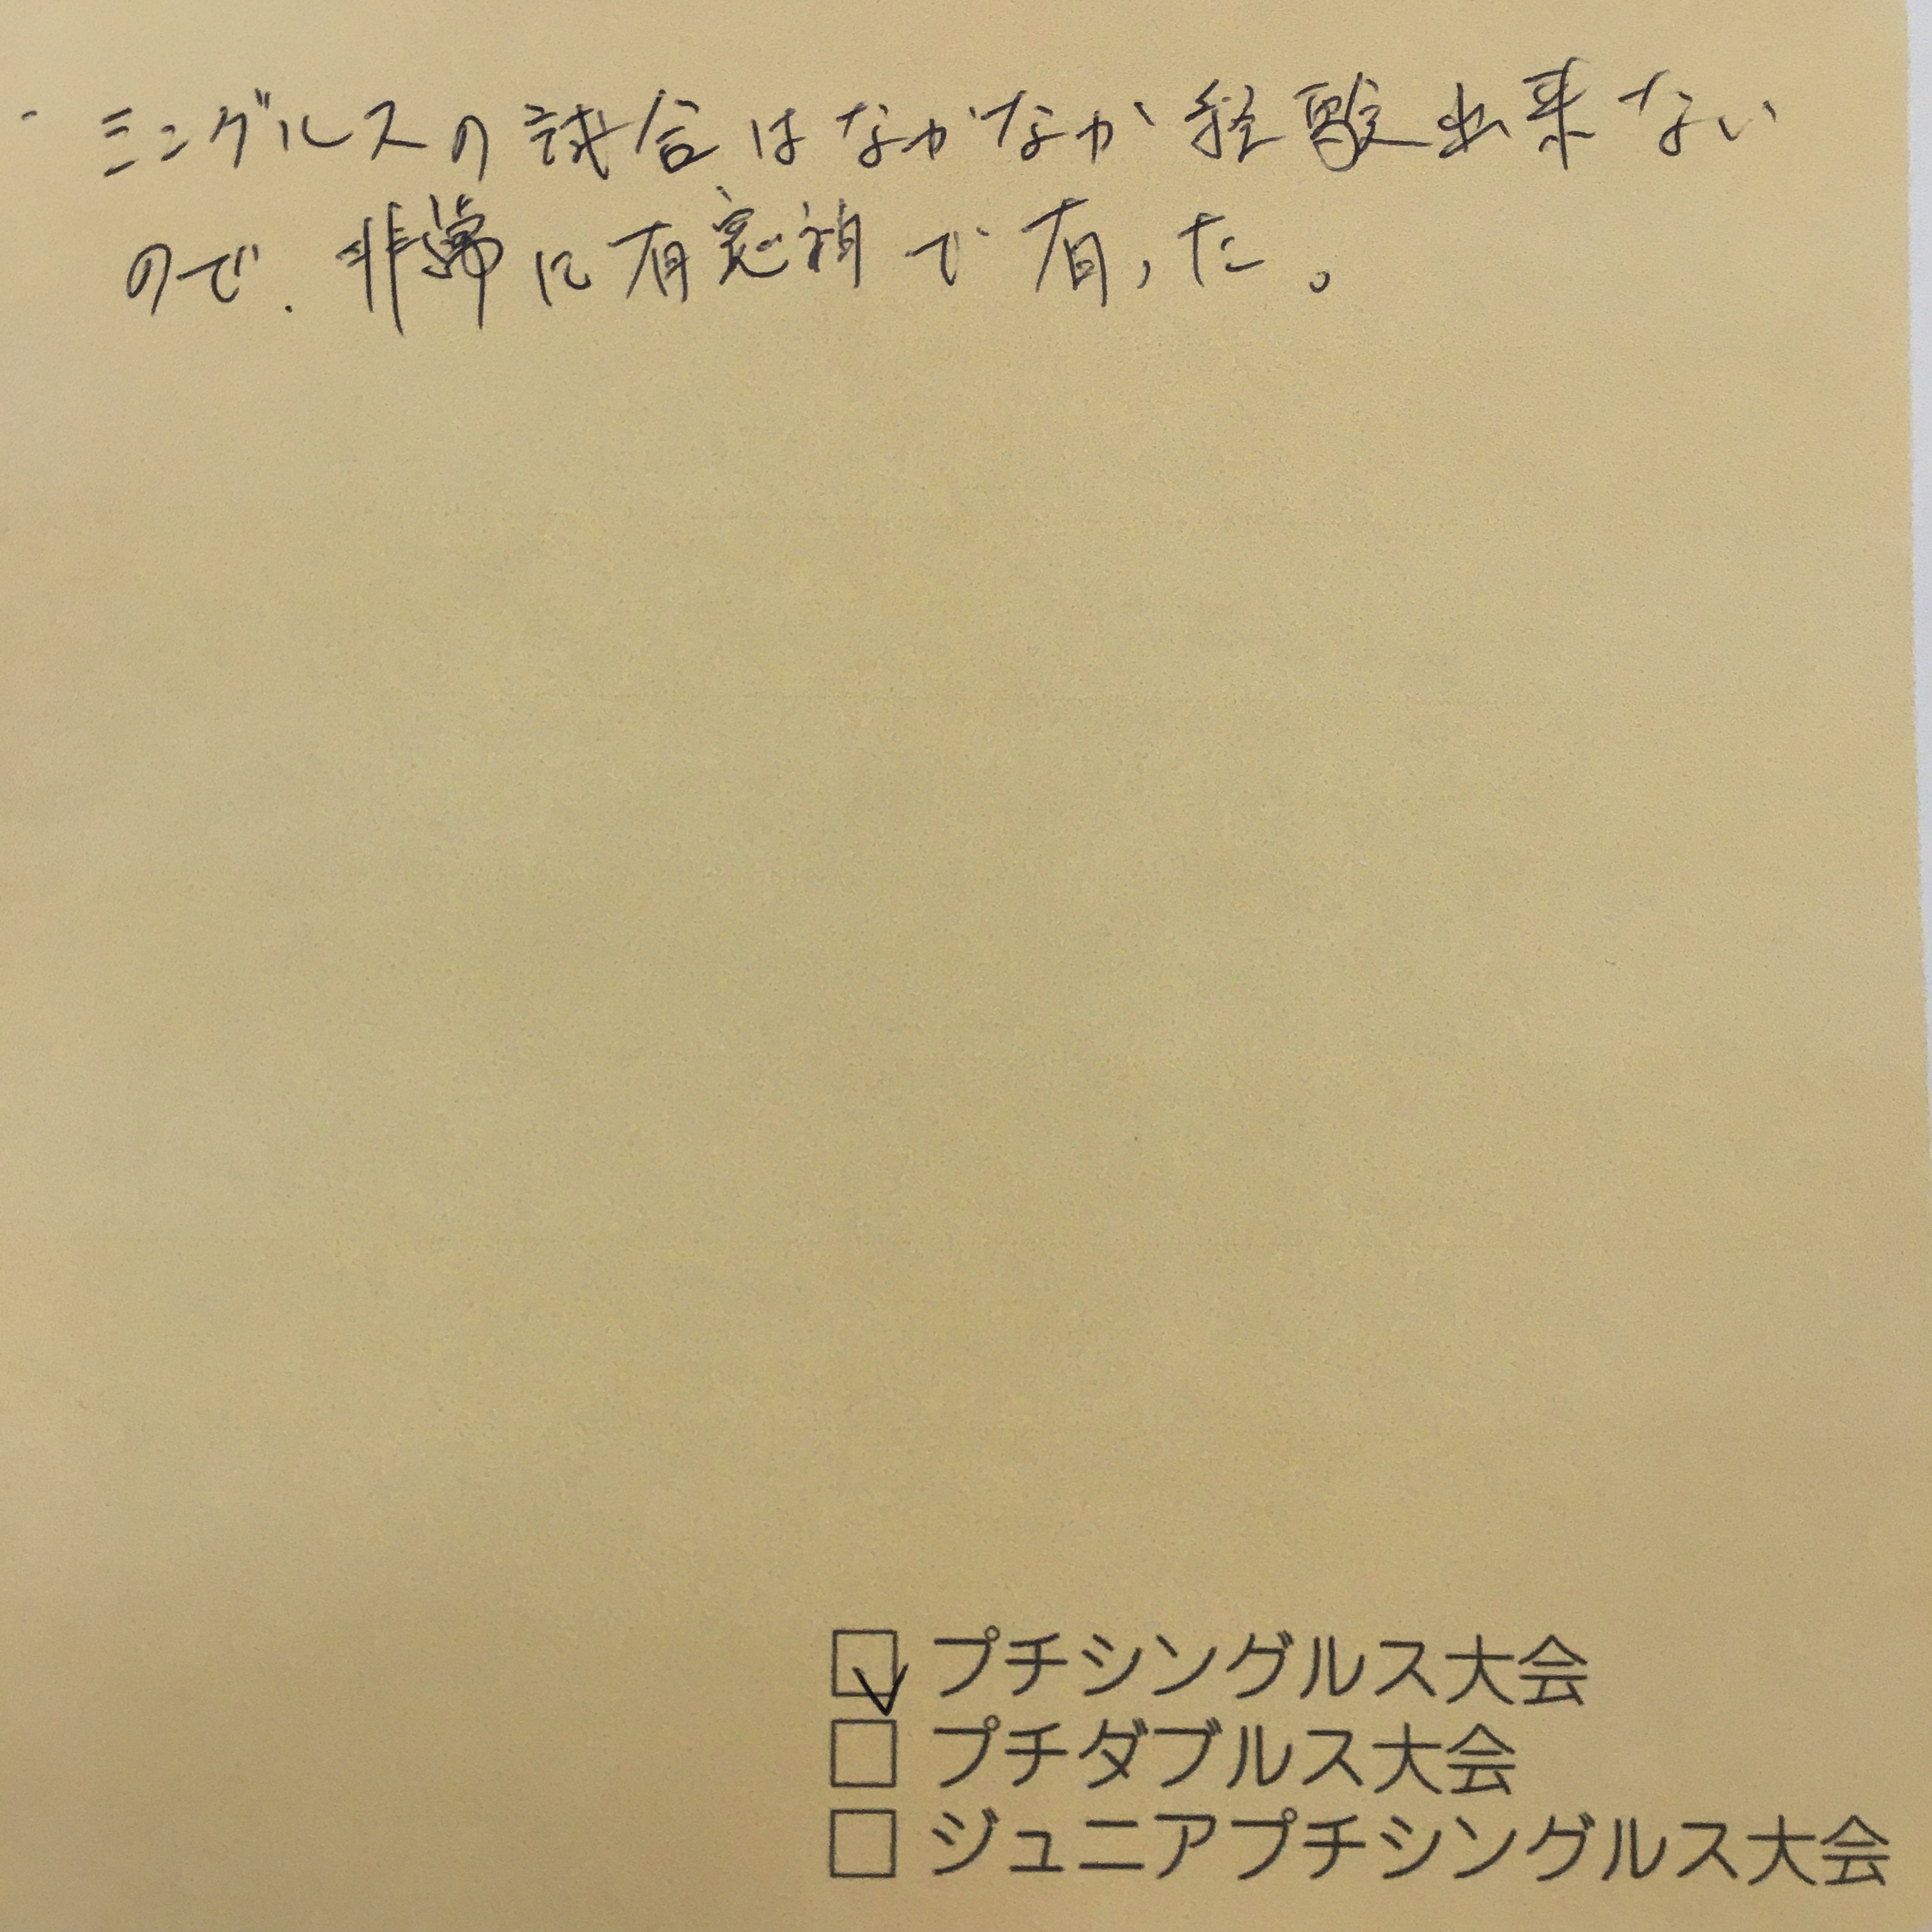 ・シングルスの試合はなかなか経験出来ない
ので、非常に有意義で有った。
プチシングルス大会
プチダブルス大会
ジュニアプチシングルス大会